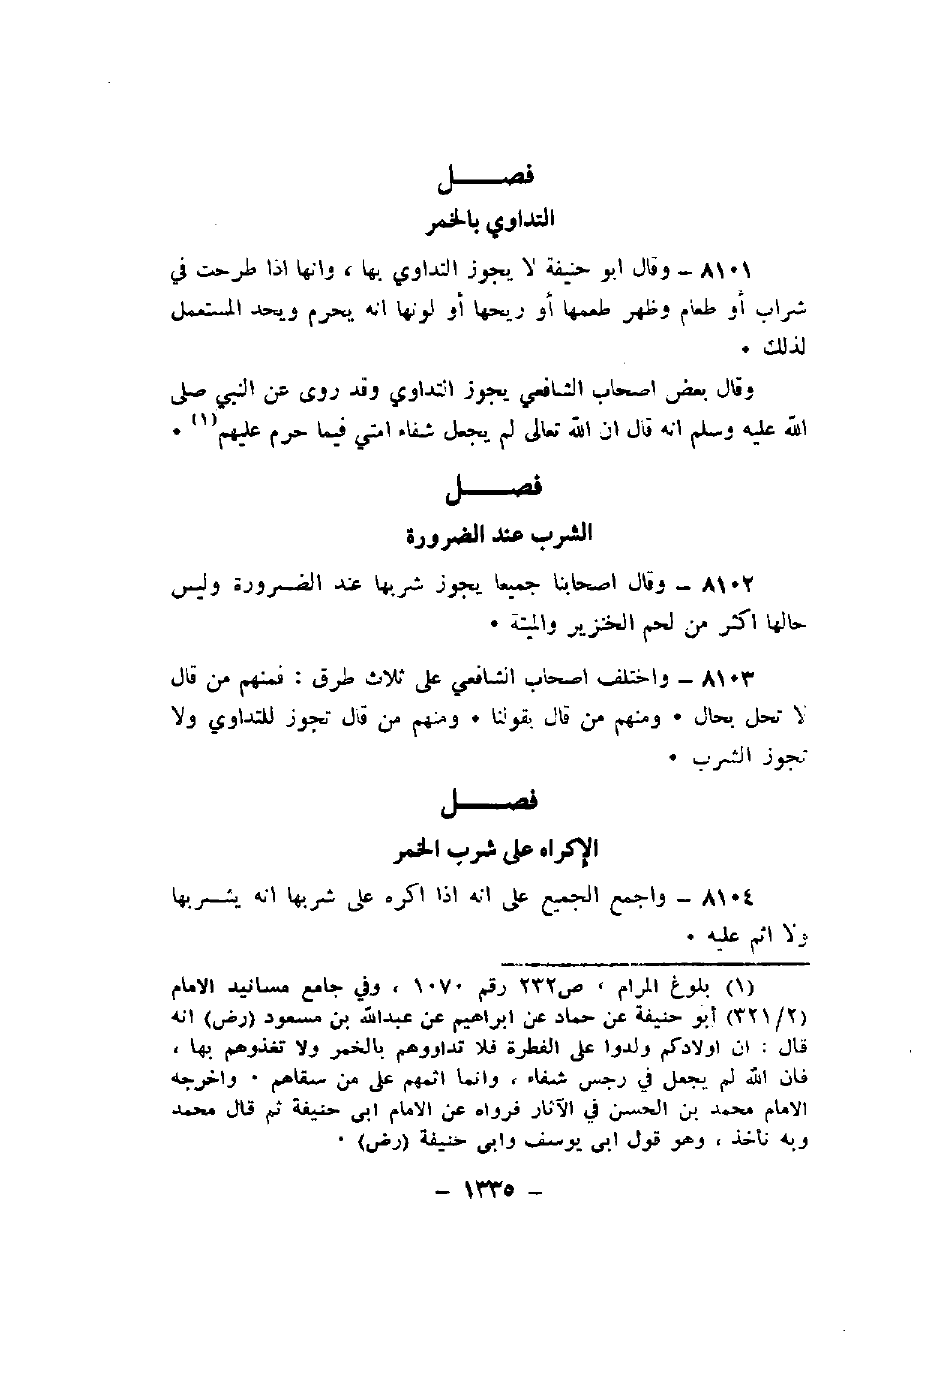 فصـــــل
التداوي بالخمر
٨١٠١ – وقال ابو حنيفة لا يجوز التداوي بها ، وانها اذا طرحت في
شراب أو طعام وظهر طعمها أو ريحها أو لونها انه يحرم ويحد المستعمل
لذلك ٠
وقال بعض اصحاب الشافعي يجوز التداوي وقد روى عن النبي صلى
الله عليه وسلم انه قال ان الله تعالى لم يجعل شفاء امتي فيما حرم عليهم(١) ٠
فصـــــل
الشرب عند الضرورة
٨١٠٢ – وقال اصحابنا جميعا يجوز شربها عند الضـرورة وليس
حالها اكثر من لحم الخنزير والميتة ٠
٨١٠٣ – واختلف اصحاب الشافعي على ثلاث طرق : فمنهم من قال
لا تحل بحال ٠ ومنهم من قال بقولنا ٠ ومنهم من قال تجوز للتداوي ولا
تجوز الشرب ٠
فصـــــل
الإكراه على شرب الخمر
٨١٠٤ – واجمع الجميع على انه اذا اكره على شربها انه يشـربها
ولا اثم عليه ٠
(١) بلوغ المرام ، ص٢٣٢ رقم ١٠٧٠ ، وفي جامع مسانيد الامام
(٣٢١/٢) أبو حنيفة عن حماد عن ابراهيم عن عبدالله بن مسعود (رض) انه
قال : ان اولادكم ولدوا على الفطرة فلا تداووهم بالخمر ولا تغذوهم بها ،
فان الله لم يجعل في رجس شفاء ، وانما اثمهم على من سقاهم ٠ واخرجه
الامام محمد بن الحسن في الآثار فرواه عن الامام ابى حنيفة ثم قال محمد
وبه نأخذ ، وهو قول ابى يوسف وابى حنيفة (رض) ٠
– ١٣٣٥ –